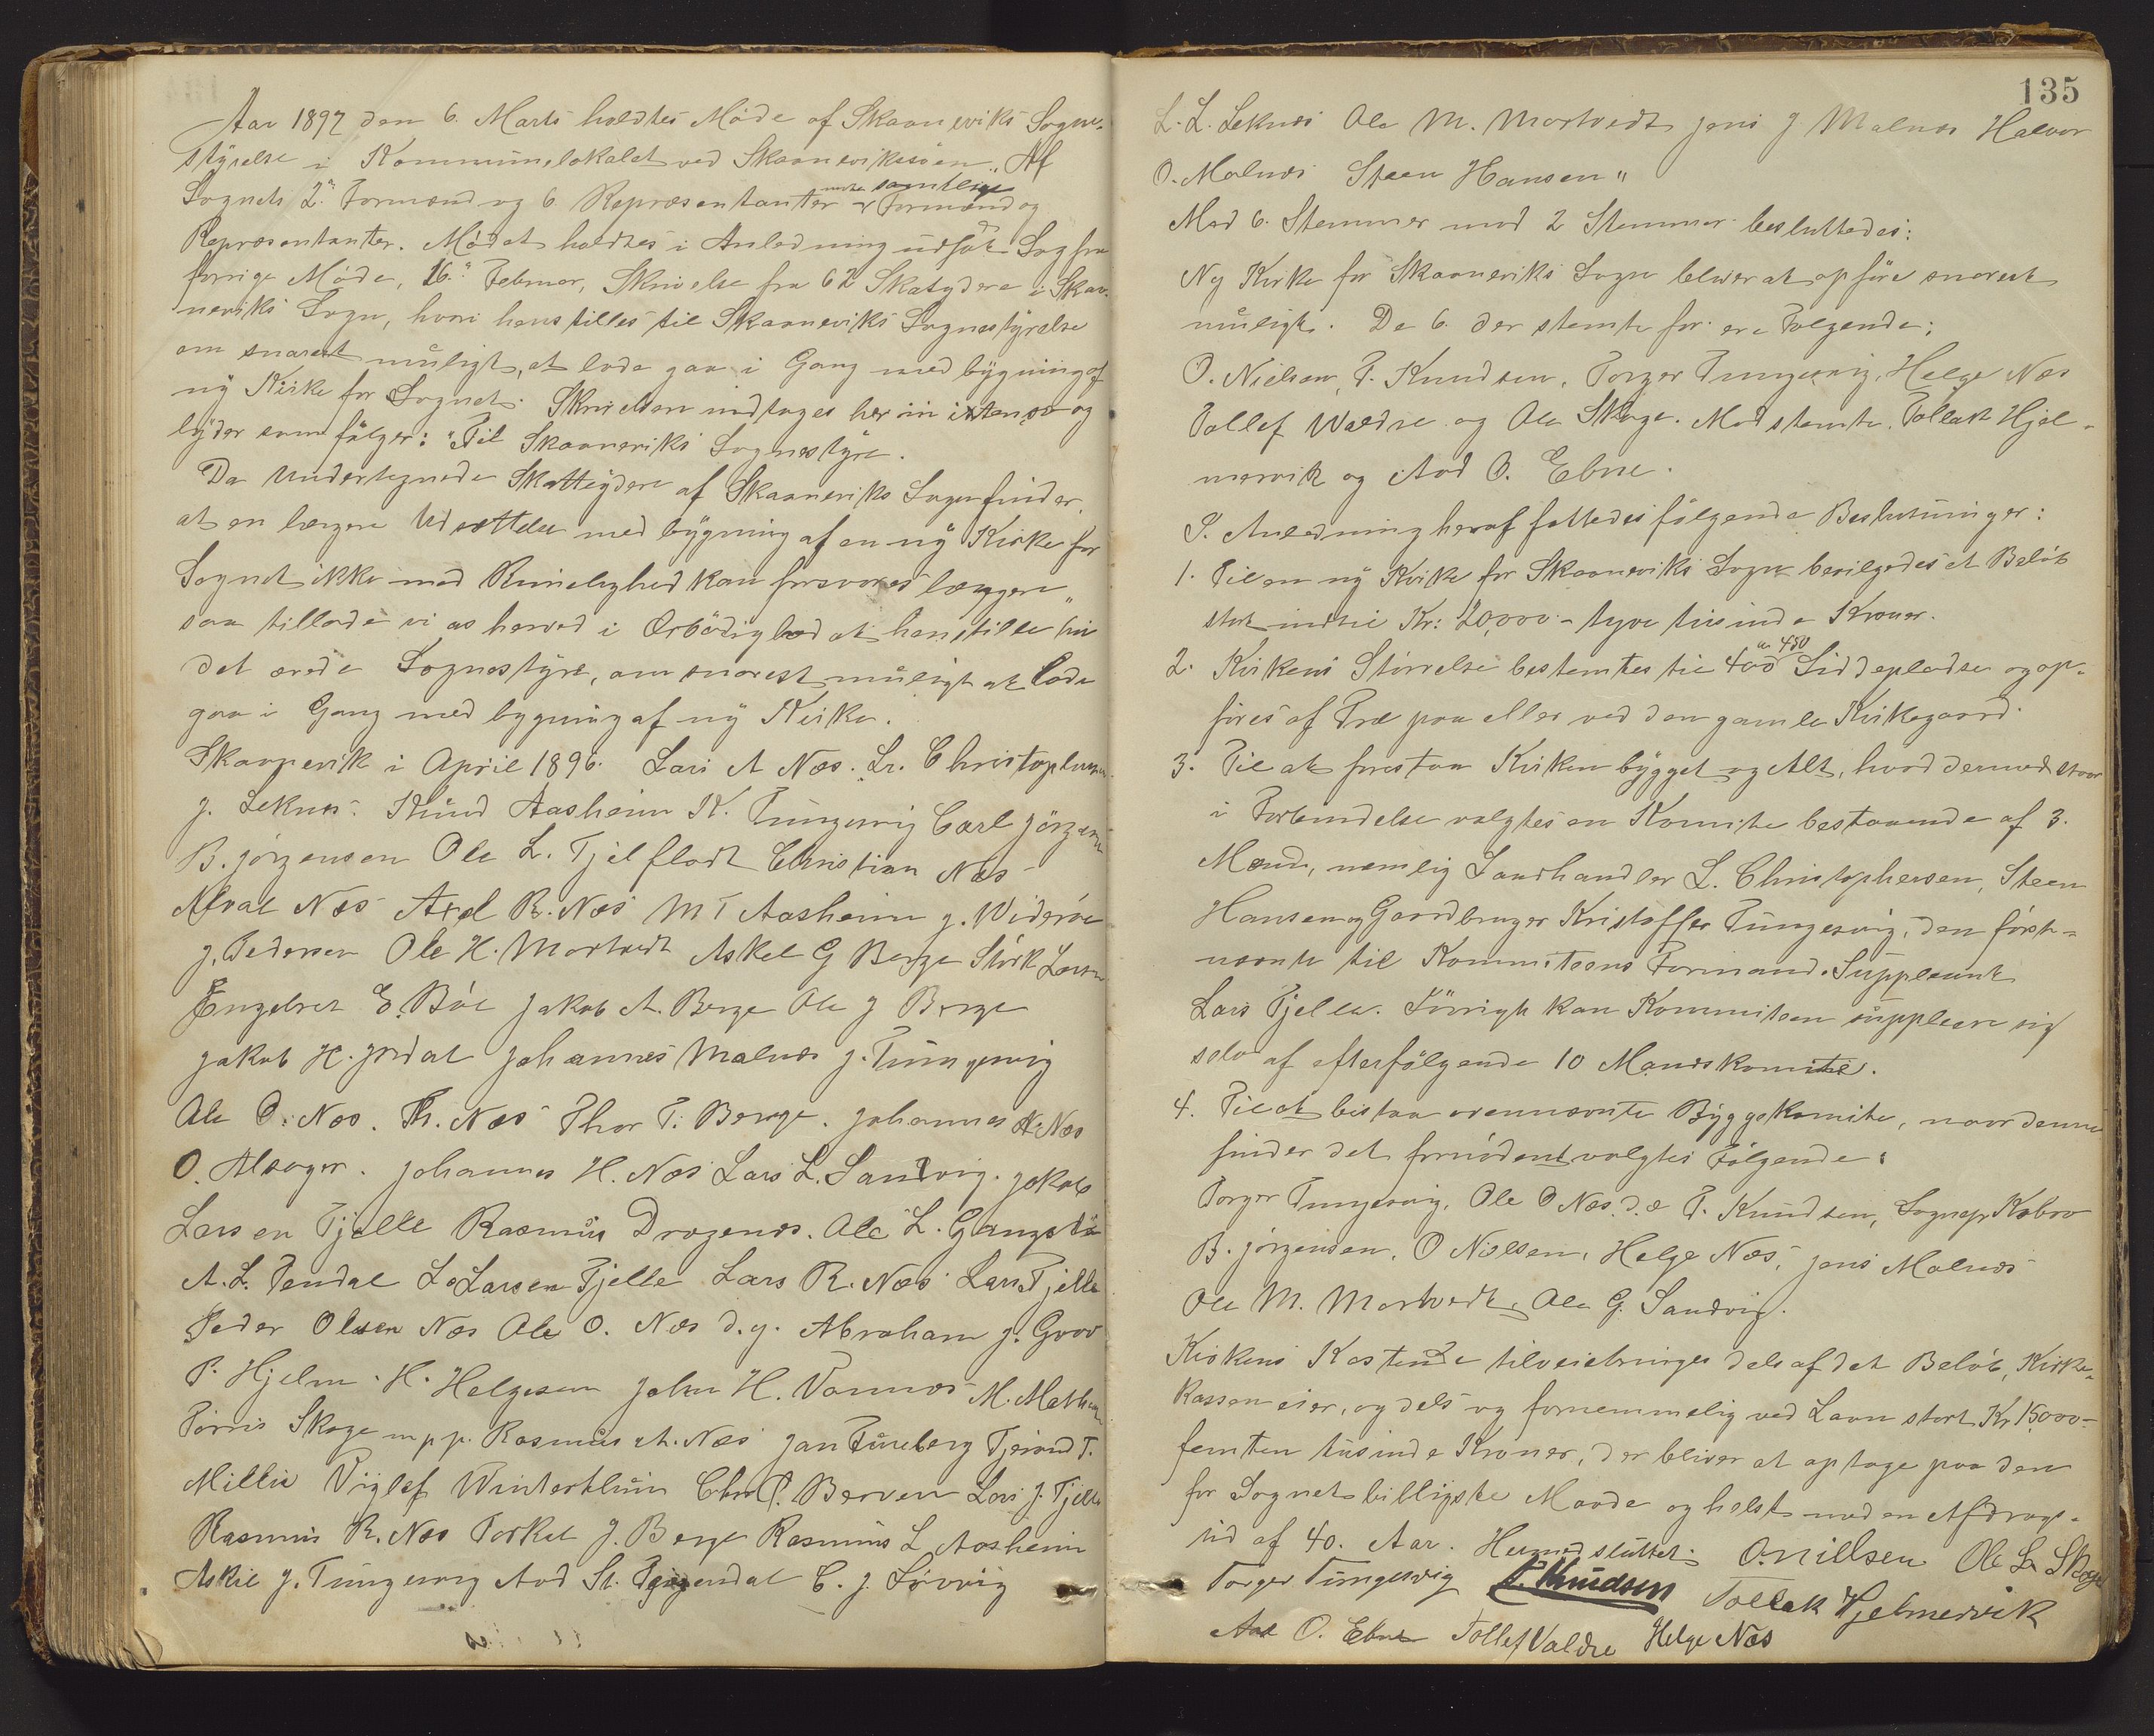 Aar 1897 den 6. Marts holdtes Møde af Skaaneviks Sogne-
styrelse i Kommunelokalet ved Skaanevikssøen. Af
Sognets 2 Formænd og 6 Repræsentanter samtlige Formænd og
Repræsentanter. Mødet holdtes i Anledning udsat Sag fra
forrige Møde, 16. Februar, Skrivelse fra 62 Skatydere i Skaa-
neviks Sogn, hvori henstilles til Skaaneviks Sognestyrelse
om snarest muligt, at lade gaa i Gang med bygning af
ny Kirke for Sognet. Skrivelsen indtages her in extenso og
lyder som følger: "Til Skaaneviks Sognestyre.
Da Undertegnede Skatteydere af Skaaneviks Sogn finder,
at en længere Udsættelse med bygning af en ny Kirke for
Sognet ikke med Rimelighed kan forsvares længere,
saa tillade vi os herved i Ærbødighed at henstille til
det ærede Sognestyre, om snarest muligt at lade
gaa i Gang med bygning af ny Kirke.
Skaanevik i April 1896. Lars A Næs. Lr. Christophersen
J. Leknes. Knud Aasheim K. Tungesvig Carl Jörgensen
B. Jörgensen Ole L. Tjelflaat Christian Næs
Alval Næs Axel R. Næs M T Aasheim J. Widerøe
J. Pedersen Ole H. Mortvedt Askel G Berge Störk Larsen
Engebret E. Böe Jakob A. Berge Ole J Berge
Jakob H. Johannes Malnes J. Tungesvig
Ole O. Næs. Th. Næs Thor T. Berge. Johannes A. Næs
O. Alsager. Johannes H. Næs Lars L. Sandvig. Jakob
Larsen Tjelle Rasmus Dragenes. Ole L. Gangstö
A. L. L. Larsen Tjelle Lars R. Næs Lars Tjelle
Peder Olsen Næs Ole O. Næs d.y. Abraham J. Grov
P. Hjelm. H. Helgesen John H. Vannes M. Mathesen
Törris Skoge m.p.p. Rasmus A. Næs Jan Tjerand T.
Millie Viglef Winterthun Chr. P. Berven Lars J. Tjelle
Rasmus R. Næs Torkel J. Berge Rasmus L Aasheim
Askil J. Tungesvig Aad St. C. J. Sörvig
135
L. L. Leknes Ole M. Mortvedt Jens J Malnes Halvor
O. Malnes Steen Hansen"
Med 6. Stemmer mod 2 Stemmer besluttedes:
Ny Kirke for Skaaneviks Sogn bliver at opføre snarest
muligt. De 6. der stemte for ere Følgende:
O. Nielsen, P. Knudsen, Torger Tungesvig, Helge Næs
Tollef Waldre og Ole Skoge. Mod stemte Tollak Hjel-
mervik og Aad O. Ebne.
I Anledning heraf fattedes følgende Beslutninger:
1. Til en ny Kirke for Skaaneviks Sogn bevilgedes et Beløb
stort indtil Kr: 20,000 - tyve tusinde Kroner.
2. Kirkens Størrelse bestemtes til 400 à 450 Siddepladse og op-
føres af Træ paa eller ved den gamle Kirkegaard.
3. Til at forestaa Kirken bygget og Alt, hvad dermed staar
i Forbindelse valgtes en Komite bestaaende af 3.
Mænd, nemlig Landhandler L. Christophersen, Steen
Hansen og Gaardbruger Kristoffer Tungesvig, den først-
nævnte til Kommiteens Formand. Suppleant
Lars Tjelle. Forrigt kan Kommiteen supplere sig
selv af efterfølgende 10 Mandskomite.
4. Til at bistaa ovennævnte Byggekomite, naar denne
finder det fornødent valgtes Følgende:
Torger Tungesvig, Ole O Næs d.æ P. Knudsen, Sognepr Kobro
B. Jörgensen, O Nielsen, Helge Næs, Jens Malnes
Ole M. Mortvedt, Ole G. Sandvig.
Kirkens Kostende tilveiebringes dels af det Beløb, Kirke-
kassen eier, og dels og fornemmelig ved Laan stort Kr 15000 -
femten tusinde Kroner, der bliver at optage paa den
for Sognet billigste Maade og helst med en Afdrags-
tid af 40. Aar. Hermed sluttet. O. Nillsen Ole L Skoge
Torger Tungesvig P. Knudsen Tollak Hjelmervik
Aad O. Ebne Tollef Valdre Helge Næs